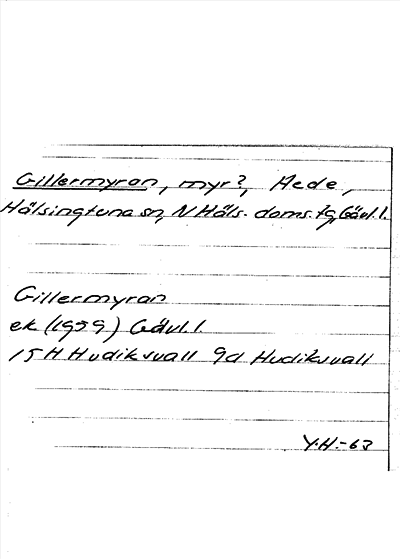 Gillermyran, myr?, Hede,
Hälsingtuna sn, N Häls. doms. tg, Gävl.l.
Gillermyran
ek (1959) Gävl.l.
15H Hudiksvall 9d Hudiksvall
Y.H.-63